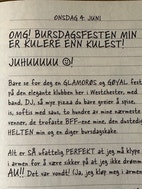 ONSDAG 4. JUNI
OMG! BURSDAGSFESTEN MIN
ER KULERE ENN KULEST!
JUHUUUUU ☺!
Bare se for deg en GLAMORØS og GØYAL fest
på den elegante klubben her i Westchester, med
band, DJ, så mye pizza du bare greier å spise,
is, softis med saus, to hundre av mine nærmeste
venner, de trofaste BFF-ene mine, den dustedig
HELTEN min og en diger bursdagskake.
Alt er SÅ ufattelig PERFEKT at jeg må klype
i armen for å være sikker på at jeg ikke drømm
AU!! Det var vondt! (Ja, jeg kløp meg i armen